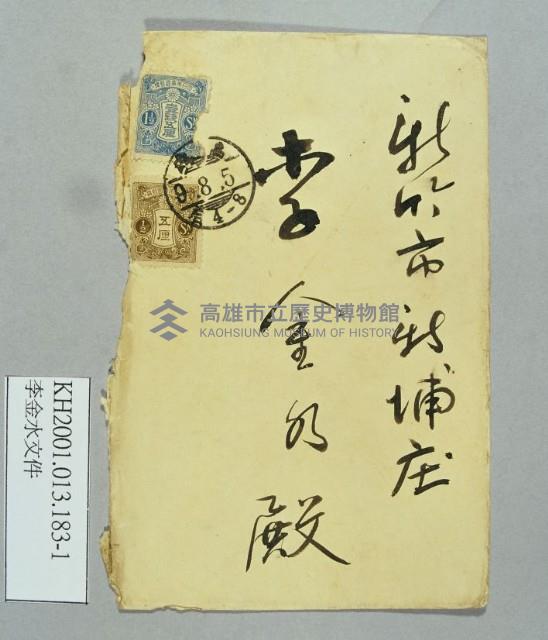 新竹市新埔庄
李金水殿
壹錢五厘
1½ Sn
五厘
½ Sn
9.8.5
4-8
高雄市立歷史博物館
KAOHSIUNG MUSEUM OF HISTORY
KH2001.013.183-1
李金水文件